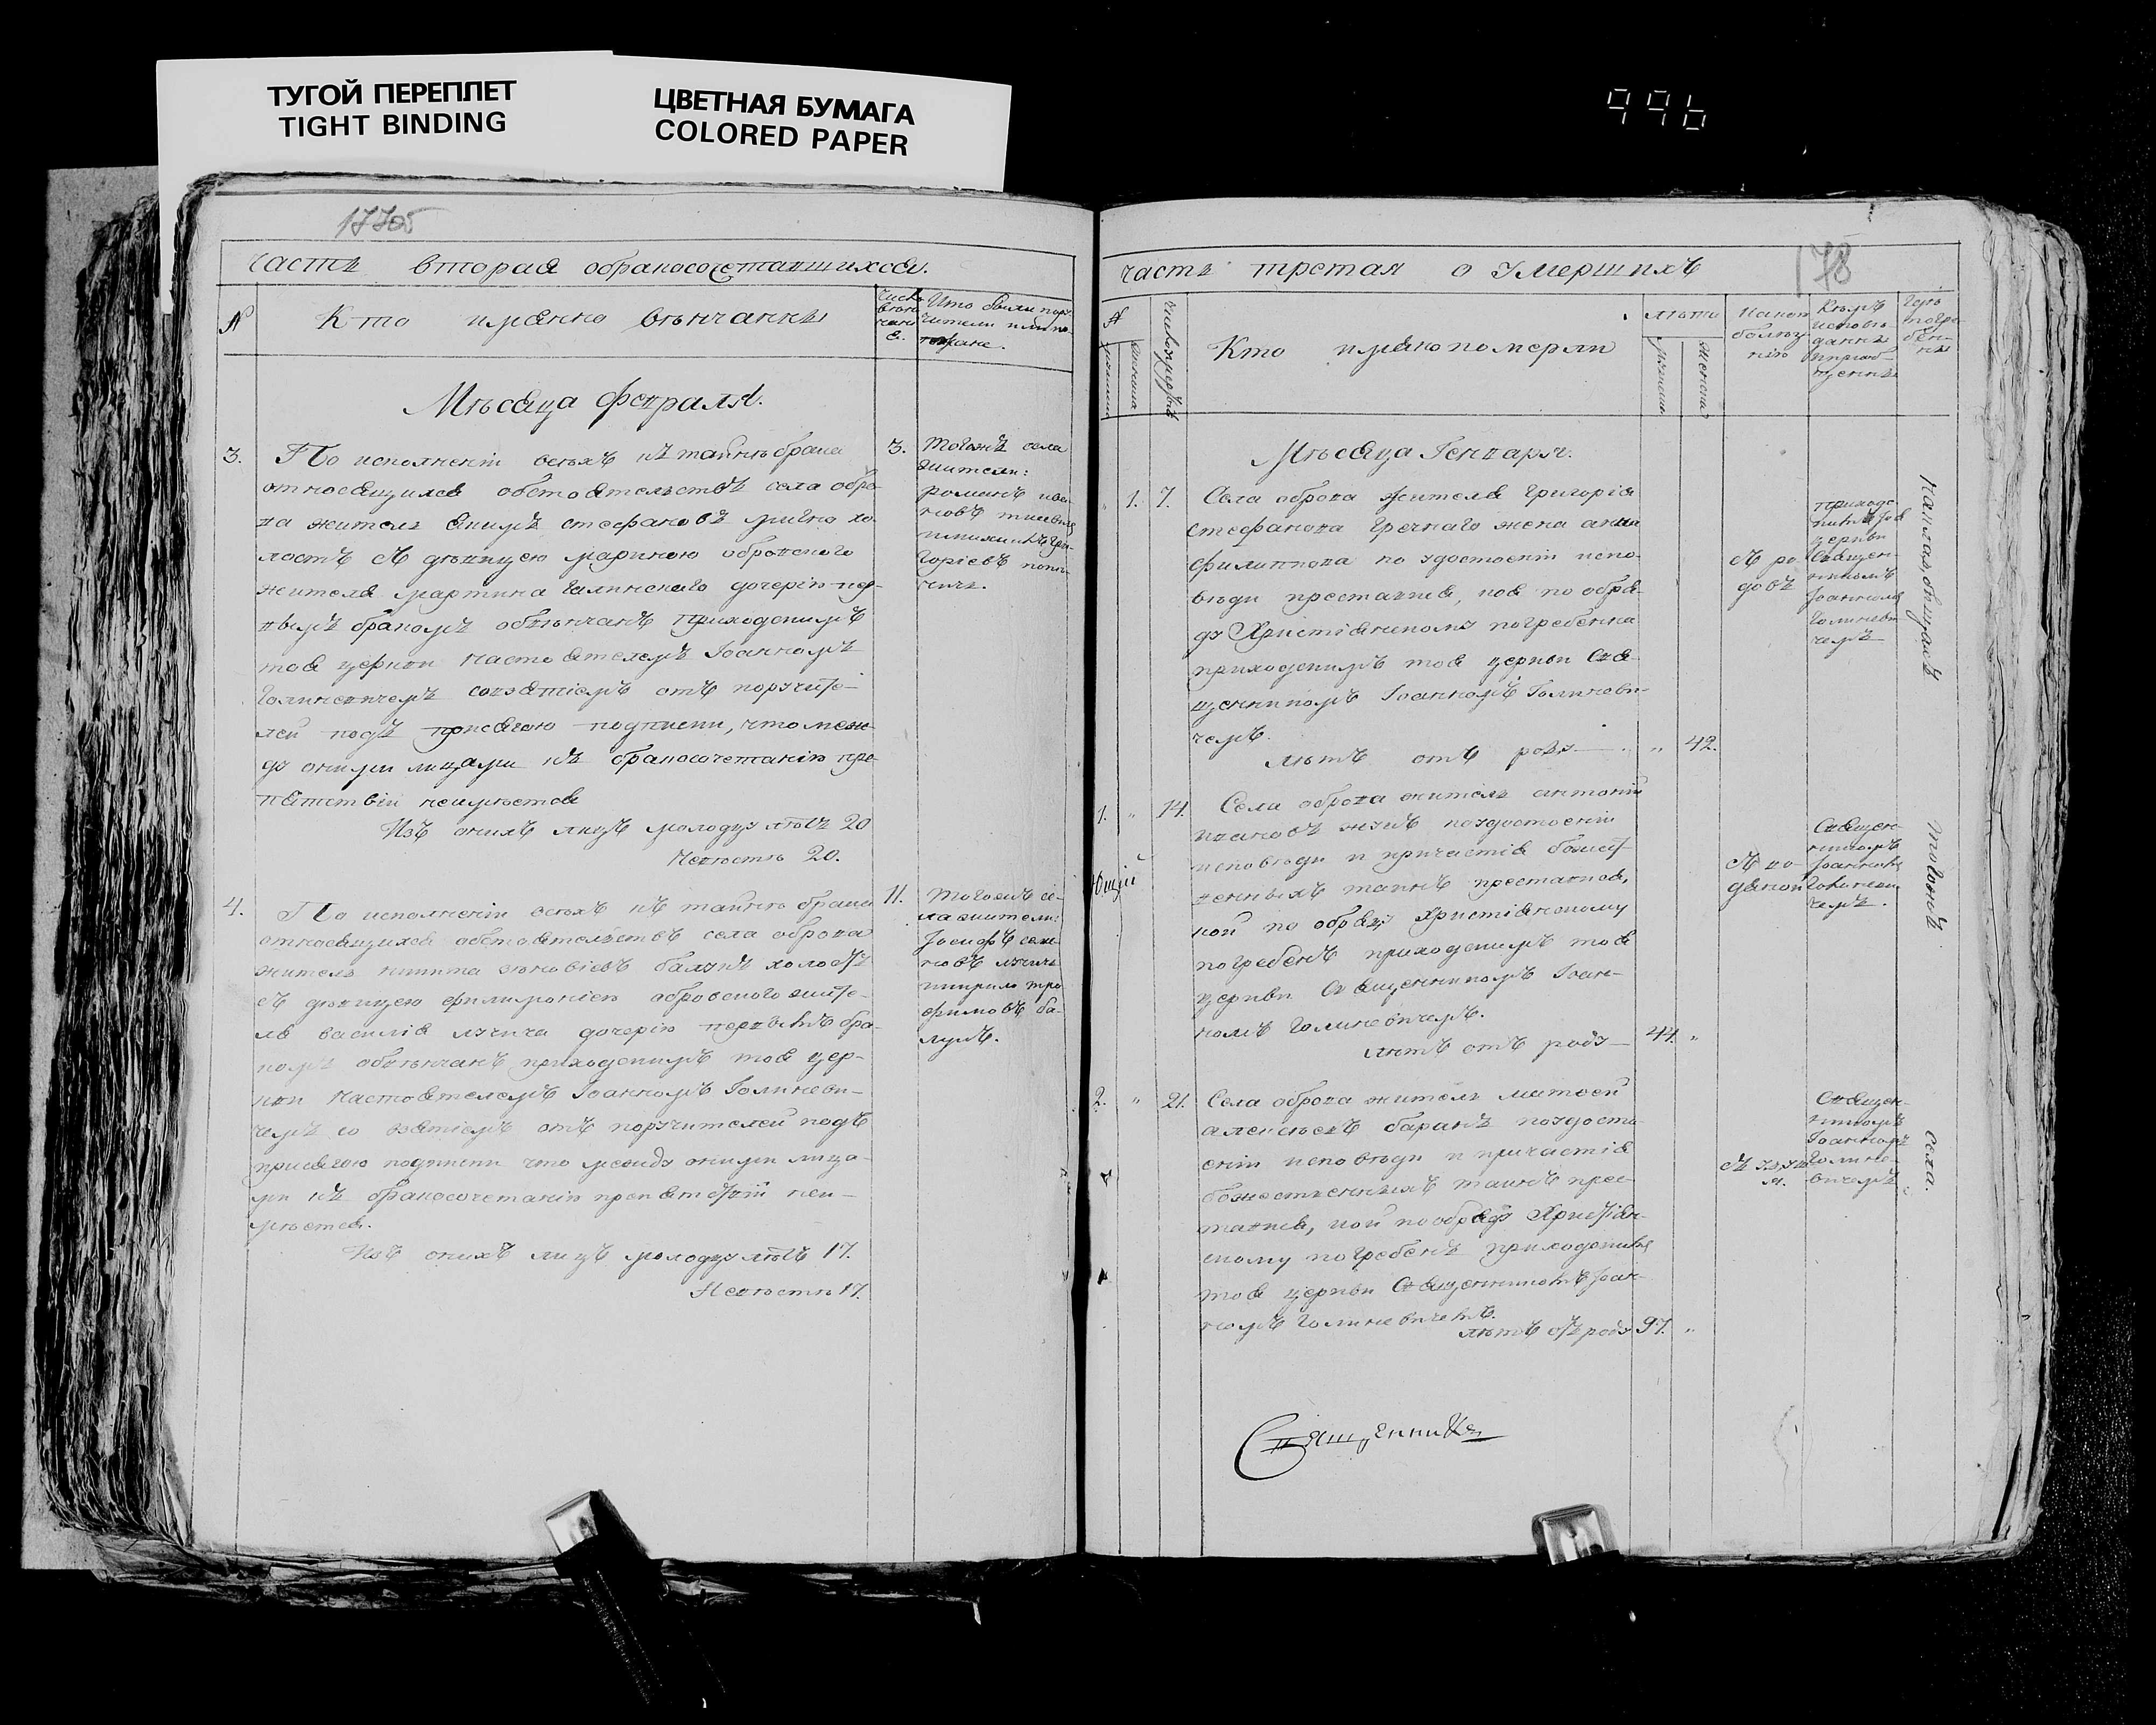 ТУГОЙ ПЕРЕПЛЕТ
TIGHT BINDING
ЦВЕТНАЯ БУМАГА
COLORED PAPER
996
177об
часть вторая обракосочетавшихся.
№
Кто имянно венчанны
Месяца Февраля.
3. По исполнении всехъ къ тайне брака
относящихся обстоятельствъ села обро
ва житель
Стефановъ
хо
лостъ съ девицею Мариною обровского
жителя Мартина Галинского дочерію пер
вымъ бракомъ обвенчанъ приходскимъ
тоя церкви настоятелемъ Іоанномъ
Голиневичемъ совзятіемъ отъ поручите-
лей подъ присягою подписки, что меж
ду оними лицами къ бракосочетанію пре
пятствій неимеется
Изъ онихъ лицъ молодцу летъ 20
Невесте 20.
3. Тогожъ села
жители:
романъ ива
новъ
горіевъ
4. По исполненіи всехъ къ тайне брака
относящихся обстоятельствъ села оброва
житель никита зеновіевъ балукъ холостъ
съ девицею филимоніею обровского жите-
ля василія лучича дочерію первымъ бра-
комъ обвенчанъ приходскимъ тоя цер-
кви настоятелемъ Іоанномъ Голиневи-
чемъ со взятіемъ отъ поручителей подъ
присягою подписки что между оними лица-
ми къ бракосочетанію препятствій неи-
меется.
Изъ онихъ лицъ молодцу летъ 17.
Невесте 17.
11. Тогожъ се-
ла жители:
Іосифъ семе
новъ лучичъ
икирило тро
фимовъ ба-
лукъ.
178
часть третая о Умершихъ
№
Число
Кто имяно померли
лета
Какою
болезнію
Кемъ
исповеданны
Где
погребенны
Месяца Генваря.
1. 7. Села оброва жителя Григорія
Стефанова Гречнаго жена анна
филиппова по удостоеніи испо-
веди преставися, коя по обря
ду Христіянскому погребенна
приходскимъ тоя церкви Свя-
щенникомъ Іоанномъ Голиневи-
чемъ.
летъ отъ роду 42.
съ ро
довъ
приходс
кимъ тоя
церкви
Священ-
никомъ
Іоанномъ
Голиневи
чемъ
1. 14. Села оброва житель антоній
ивановъ жукъ поудостоеніи
исповеди и причастія божест
венныхъ таинъ преставися,
кой по обряду Христіянскому
погребенъ приходскимъ тоя
церкви Священникомъ Іоан-
номъ Голиневичемъ.
летъ отъ роду 44.
Священ-
никомъ
Іоанномъ
Голиневи
чемъ.
2. 21. Села оброва житель матвей
алексеевъ баранъ поудосто
еніи исповеди и причастія
божественныхъ таинъ прес
тавися, кой пообряду Христіян-
скому погребенъ приходскимъ
тоя церкви Священникомъ Іоан-
номъ Голиневичемъ.
летъ отъ роду 97.
Священ-
никомъ
Іоанномъ
Голине-
вичемъ
тогожъ
села.
Священника